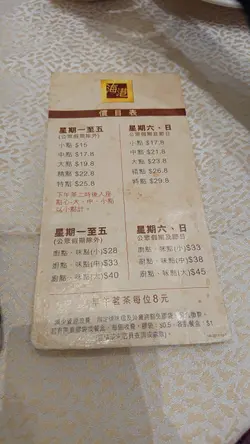 海港
價目表
星期一至五
(公眾假期除外)
小點 $15
中點 $17.8
大點 $19.8
精點 $22.8
特點 $25.8
下午茶二時後入座
點心大、中、小點
以小點計。
星期六、日
公眾假期及節日
小點 $17.8
中點 $21.8
大點 $23.8
精點 $26.8
特點 $29.8
星期一至五
(公眾假期除外)
廚點、味點(小)$28
廚點、味點(中)$33
廚點、味點(大)$40
星期六、日
公眾假期及節日
廚點、味點(小)$33
廚點、味點(中)$38
廚點、味點(大)$45
早午茗茶每位8元